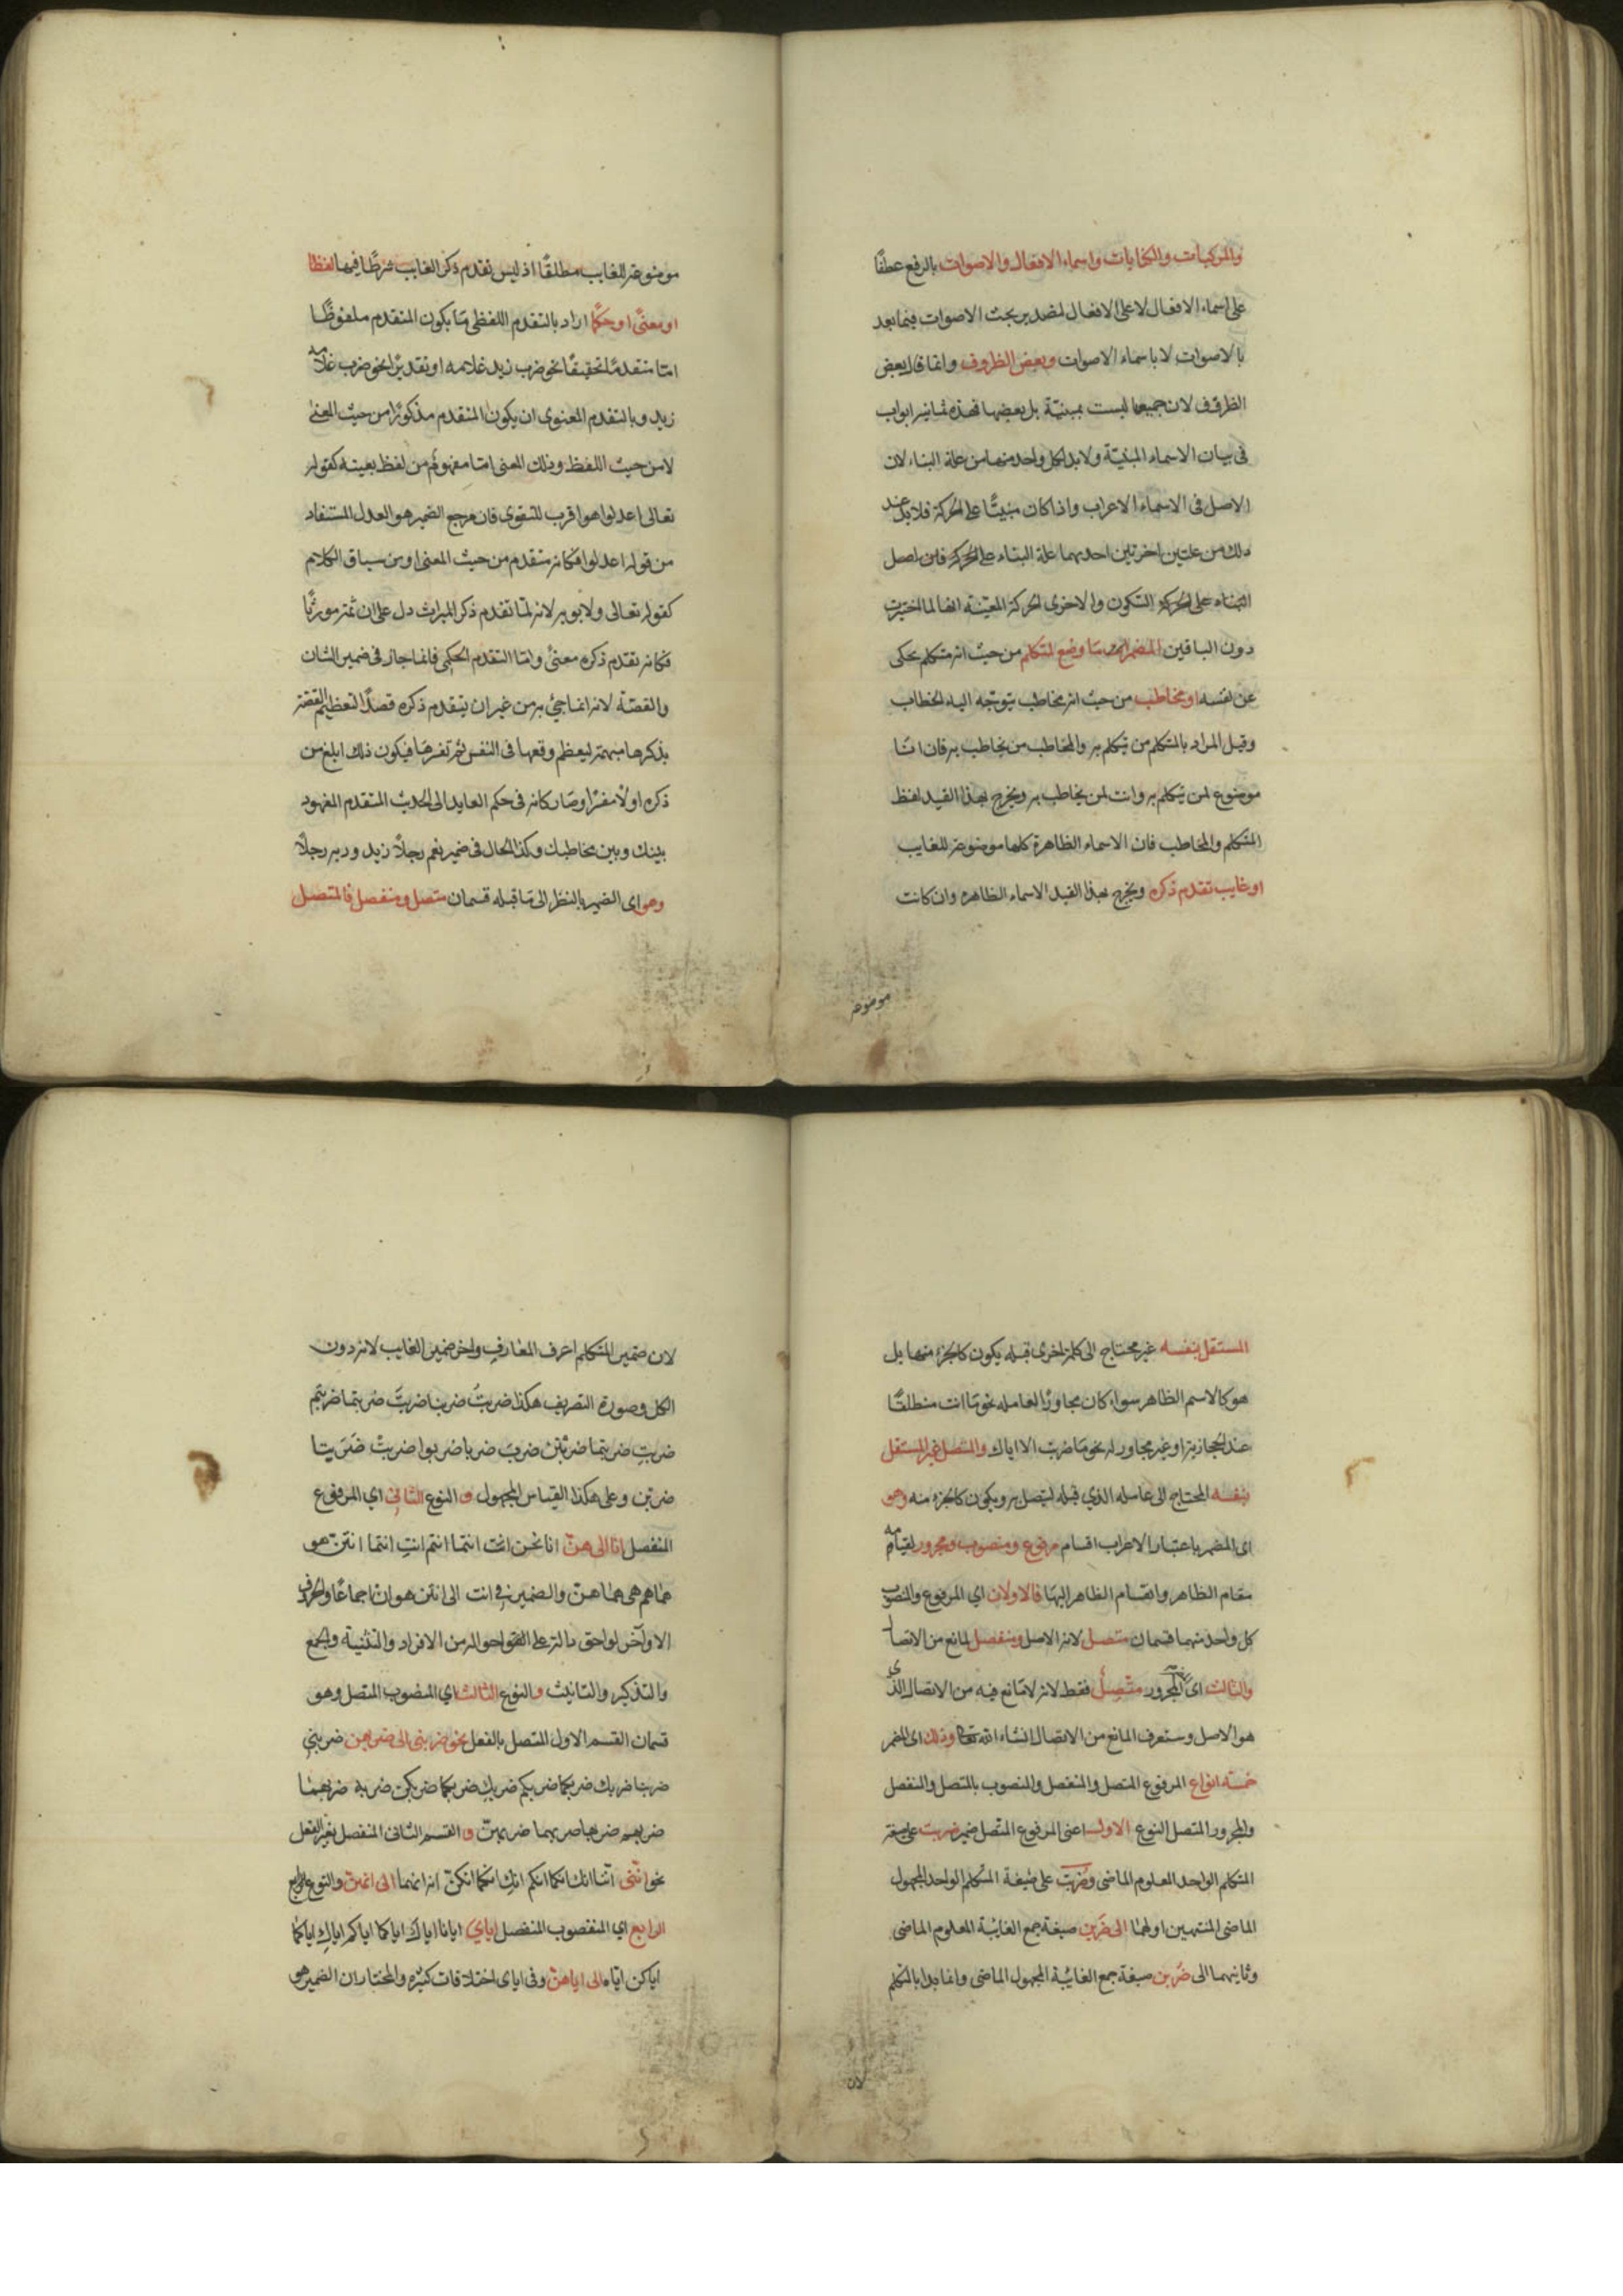 والمركبات والكنايات واسماء الافعال والاصوات بالرفع عطفًا
على اسماء الافعال لا على الافعال لتصدير بحث الاصوات فيما بعد
بالاصوات لا باسماء الاصوات وبعض الظروف وانما قال بعض
الظروف لان جميعها ليست بمبنيّة بل بعضها فهذه ثمانيه ابواب
فى بيان الاسماء المبنيّة ولابد لكل واحد منها من علة البناء لان
الاصل فى الاسماء الاعراب واذا كان مبنيًّا على الحركة فلابد عند
ذلك من علتين اخرتين احديهما علة البناء على الحركة فان اصل
البناء على السكون والاخرى الحركة المعيّنة انها لما اختيرت
دون الباقين المضمر ما وضع لمتكلم من حيث انه متكلم يحكى
عن نفسه او مخاطب من حيث انه مخاطب يتوجّه اليه الخطاب
وقيل المراد بالمتكلم من يتكلم به والمخاطب من يخاطب به فان انا
موضوع لمن يتكلم به وانت لمن يخاطب به ويخرج بهذا القيد لفظ
المتكلم والمخاطب فان الاسماء الظاهرة كلها موضوعه للغايب
او غايب تقدم ذكره ويخرج بهذا القيد الاسماء الظاهره وان كانت
موضوعه
موضوعه للغايب مطلقًا اذ ليس تقدم ذكر الغايب شرطًا فيها لفظا
او معنًى او حكمًا اراد بالتقدم اللفظى ما يكون المتقدم ملفوظًا
امّا متقدمًا تحقيقًا نحو ضرب زيد غلامه او تقديرًا نحو ضرب غلامه
زيد وبالتقدم المعنوى ان يكون المتقدم مذكورًا من حيث المعنى
لا من حيث اللفظ وذلك المعنى امّا مفهوم من لفظ بعينه كقوله
تعالى اعدلوا هو اقرب للتقوى فان مرجع الضمير هو العدل المستفاد
من قوله اعدلوا فكانه متقدم من حيث المعنى او من سياق الكلام
كقوله تعالى ولابويه لانه لمّا تقدم ذكر الميراث دل على ان ثمّه مورثًا
فكانه تقدم ذكره معنًى وامّا التقدم الحكمى فانما جاز فى ضمير الشان
والقصّة لانه انما جئ به من غير ان يتقدم ذكره قصدًا لتعظيم القصّة
بذكرها مبهمة ليعظم وقعها فى النفس ثم تفسرها فيكون ذلك ابلغ من
ذكره اولاً مفسّرا وصار كانه فى حكم العايد الى الحديث المتقدم المعهود
بينك وبين مخاطبك وكذا الحال فى ضمير نعم رجلاً زيد وربه رجلاً
وهو اى الضمير بالنظر الى ما قبله قسمان متصل ومنفصل فالمتصل
المستقل بنفسه غير محتاج الى كلمة اخرى قبله يكون كالجزء منها بل
هو كالاسم الظاهر سواء كان مجاورًا لعامله نحو ما انت منطلقًا
عند الحجازية او غير مجاور له نحو ما ضربت الا اياك والمتصل غير المستقل
بنفسه المحتاج الى عامله الذي قبله ليتصل به ويكون كالجزء منه وهو
اى المضمر باعتبار الاعراب اقسام مرفوع ومنصوب ومجرور لقيامه
مقام الظاهر وانقسام الظاهر اليها فالاولان اي المرفوع والمنصوب
كل واحد منهما قسمان متصل لانه الاصل ومنفصل لمانع من الاتصال
والثالث اى المجرور متّصلٌ فقط لانه لا مانع فيه من الاتصال الذى
هو الاصل وستعرف المانع من الاتصال انشاء الله تعالى وذلك اى المضمر
خمسته انواع المرفوع المتصل والمنفصل والمنصوب بالمتصل والمنفصل
والمجرور المتصل النوع الاول اعنى المرفوع المتّصل ضمير ضربت على صيغة
المتكلم الواحد المعلوم الماضى وضُربت على صيغة المتكلم الواحد المجهول
الماضى المنتهيين اولهما الى ضَربن صيغة جمع الغائبة المعلوم الماضى
وثانيهما الى ضُربن صيغة جمع الغائبة المجهول الماضى وانما بدا بالمتكلم
لان
لان ضمير المتكلم اعرف المعارف واخر ضمير الغايب لانه دون
الكل وصورة التصريف هكذا ضربتُ ضربنا ضربتَ ضربتما ضربتم
ضربتِ ضربتما ضربتنّ ضربَ ضربا ضربوا ضربتْ ضَرَبتا
ضربن وعلى هكذا القياس المجهول و النوع الثانى اي المرفوع
المنفصل انا الى هنّ انا نحن انتَ انتما انتم انتِ انتما انتنّ هو
هما هم هى هما هنّ والضمير في انت الى انتن هو ان اجماعًا والحروف
الاواخر لواحق دالة على احواله من الافراد والتثنية والجمع
والتذكير والتانيث والنوع الثالث اي المنصوب المتصل وهو
قسمان القسم الاول المتصل بالفعل نحو ضربنى الى ضربهن ضربني
ضربنا ضربك ضربكما ضربكم ضربكِ ضربكما ضربكن ضربه ضربهما
ضربهم ضربها ضربهما ضربهنّ و القسم الثانى المنفصل بغير الفعل
نحو انّنى انّنا انك انكما انكم انكِ انكما انكنّ انه انهما الى انهنّ والنوع
الرابع اي المنصوب المنفصل اياي ايانا اياكَ اياكما اياكم اياكِ اياكما
اياكن ايّاه الى اياهنّ وفى اياى اختلافات كثيره والمختار ان الضمير هو